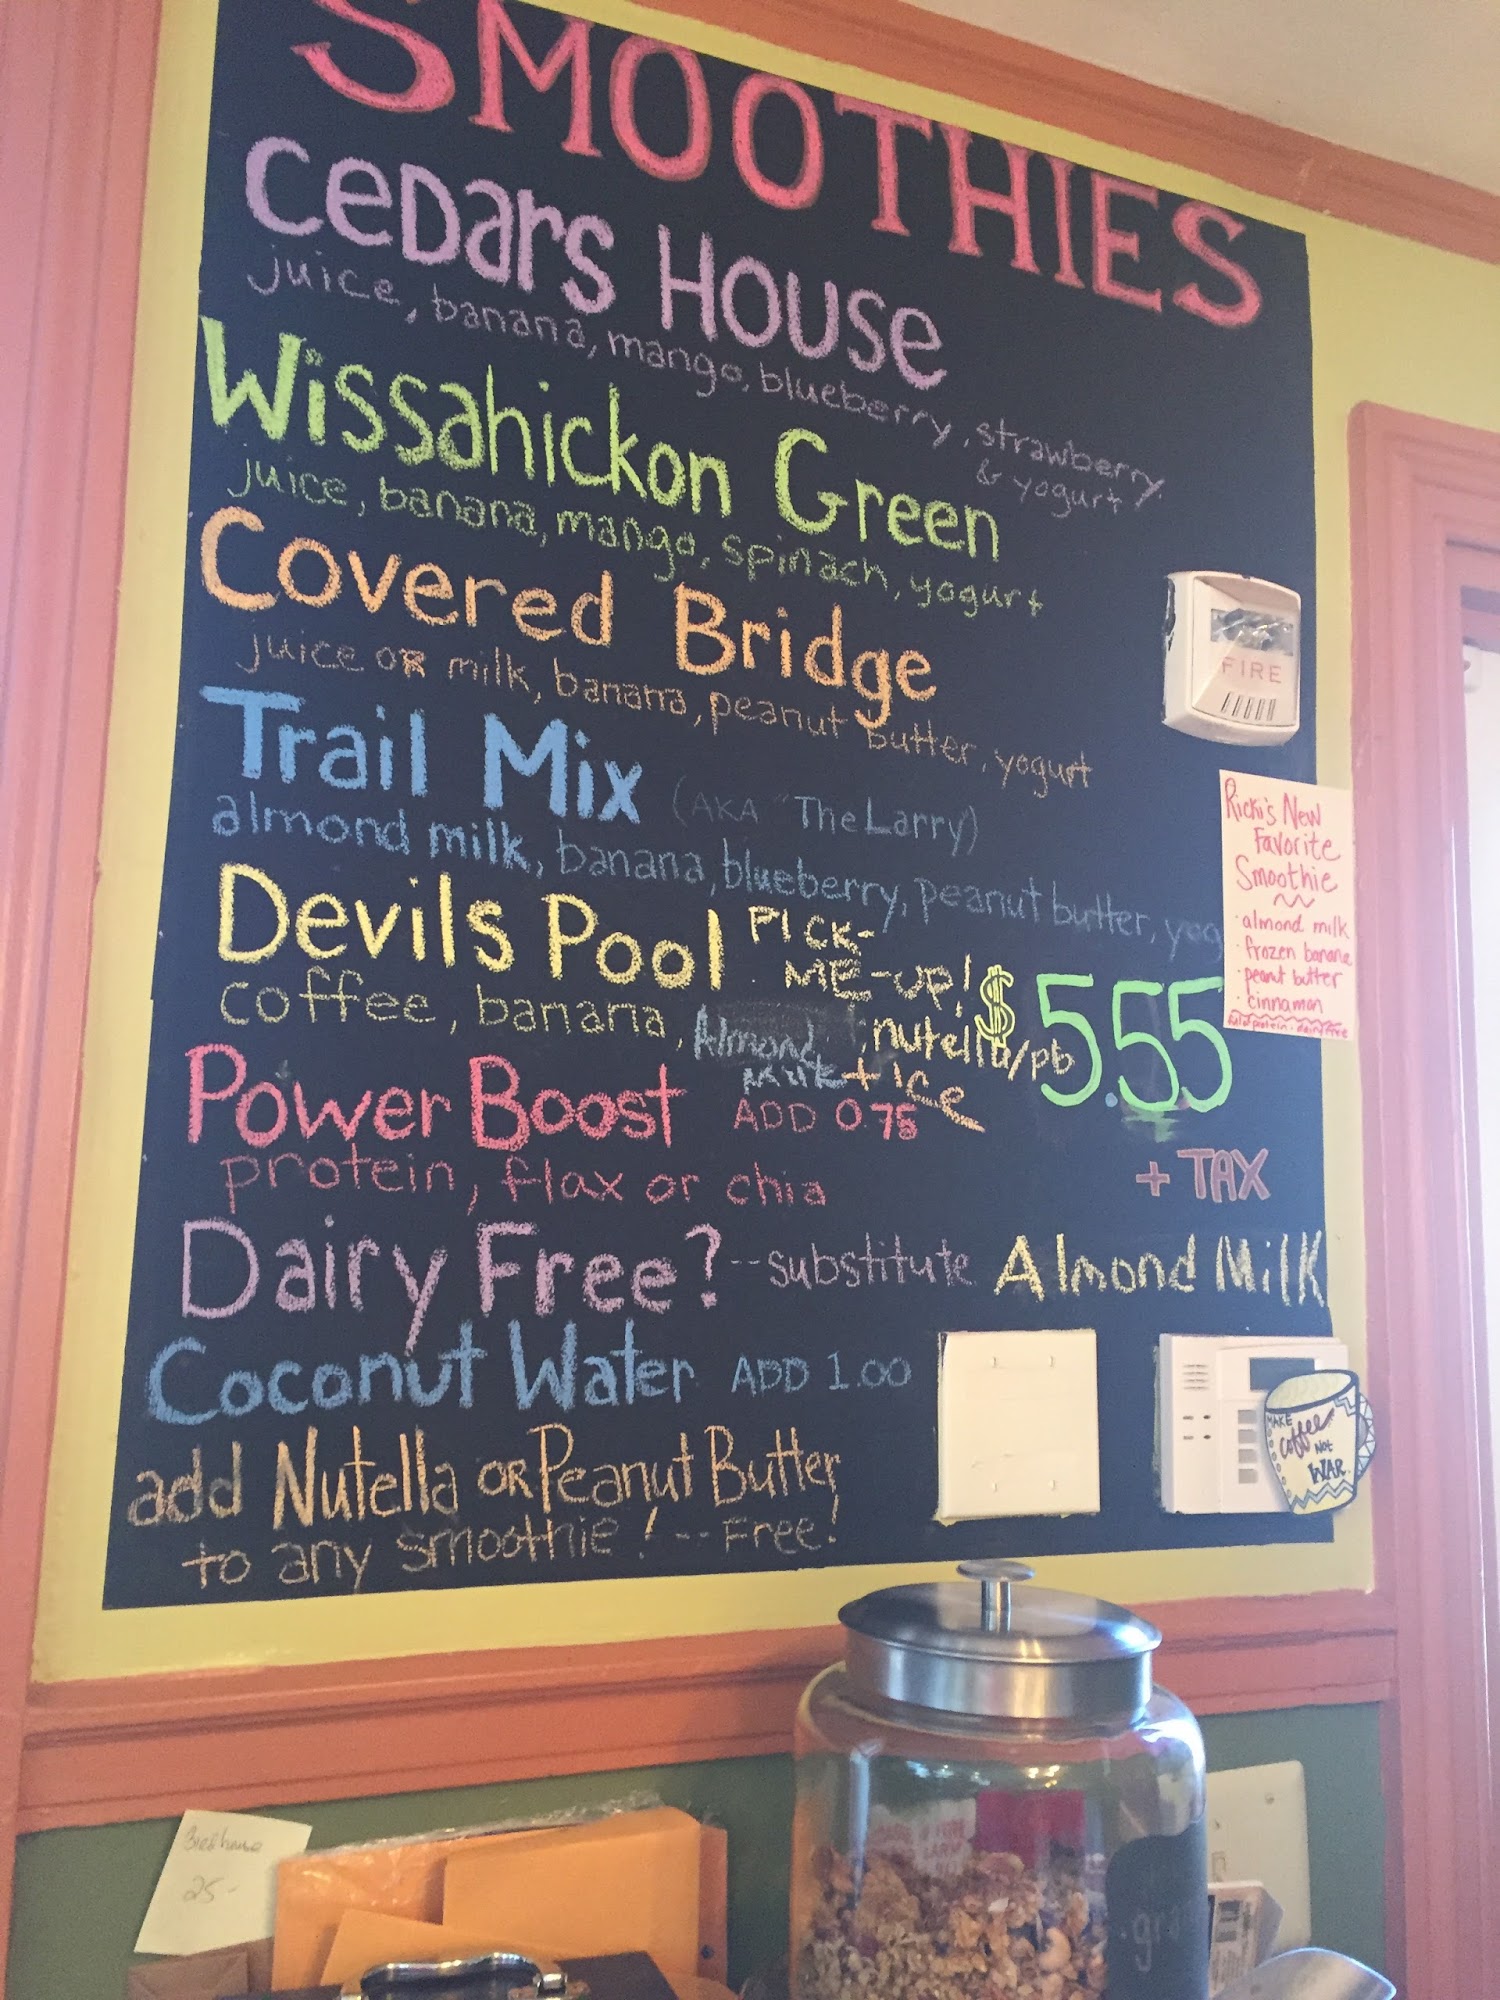 SMOOTHIES
Cedars House
juice, banana, mango, blueberry, strawberry
& yogurt
Wissahickon Green
juice, banana, mango, spinach, yogurt
Covered Bridge
juice OR milk, banana, peanut butter, yogurt
Trail Mix (AKA "The Larry)
almond milk, banana, blueberry, peanut butter, yog
Devils Pool PICK-
ME-UP!
coffee, banana, Almond
Milk + ice
nutella/pb
$5.55
+ TAX
Power Boost ADD 0.75
protein, flax or chia
Dairy Free? -- substitute Almond Milk
Coconut Water ADD 1.00
add Nutella OR Peanut Butter
to any smoothie! -- Free!
FIRE
Ricki's New
Favorite
Smoothie
· almond milk
· frozen banana
· peanut butter
· cinnamon
MAKE
Coffee
Not
WAR
25-